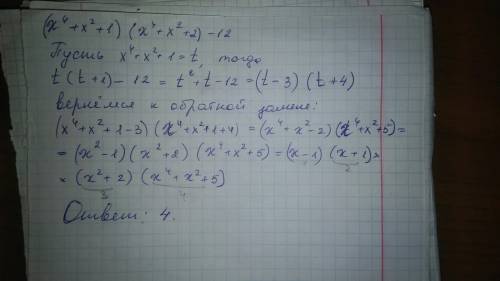 (x⁴+x²+1) (x⁴+x²+2) -12
Пусть x⁴+x²+1=t, тогда
t(t+1)-12 = t²+t-12=(t-3) (t+4)
вернёмся к обратной замене:
(x⁴+x²+1-3)(x⁴+x²+1+4) =(x⁴+x²-2)(x⁴+x²+5)=
= (x²-1) (x²+2) (x⁴+x²+5) = (x-1) (x+1)×
1 2
× (x²+2) (x⁴+x²+5)
3 4
Ответ: 4.